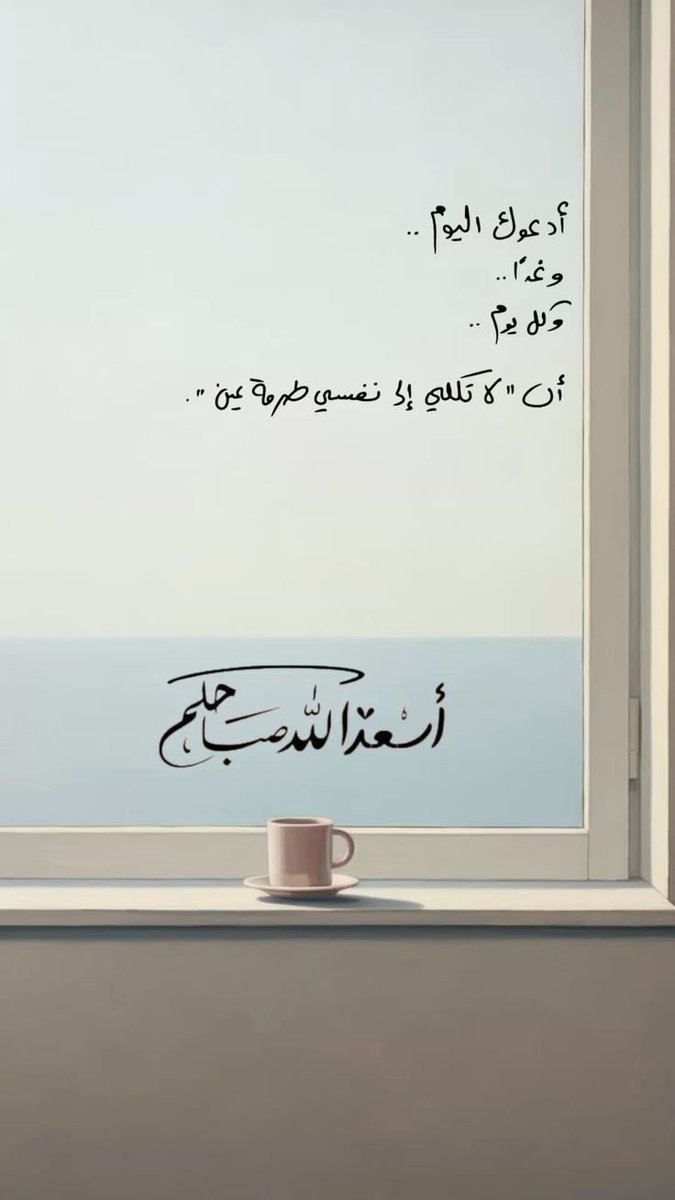 أدعوك اليوم ..
وغدًا ..
وكل يوم ..
أن "لا تكلني إلى نفسي طرفة عين".
أسعد الله صباحكم